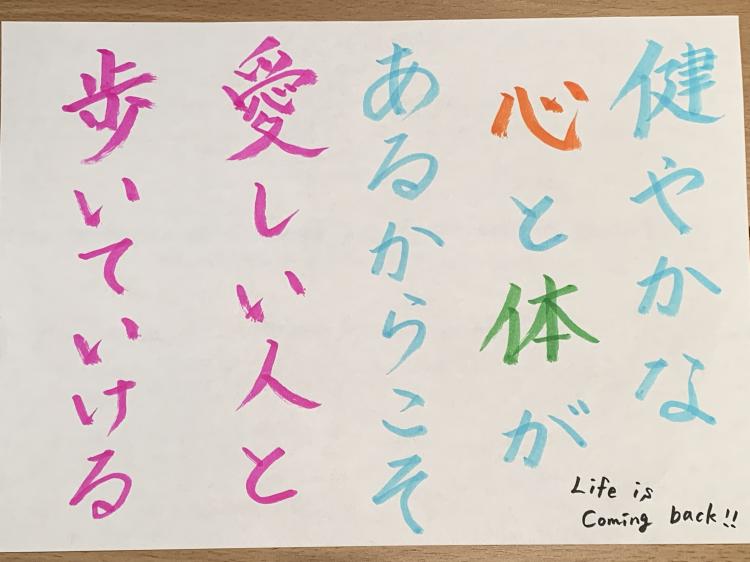 健やかな
心と体が
あるからこそ
愛しい人と
歩いていける
Life is
Coming back!!